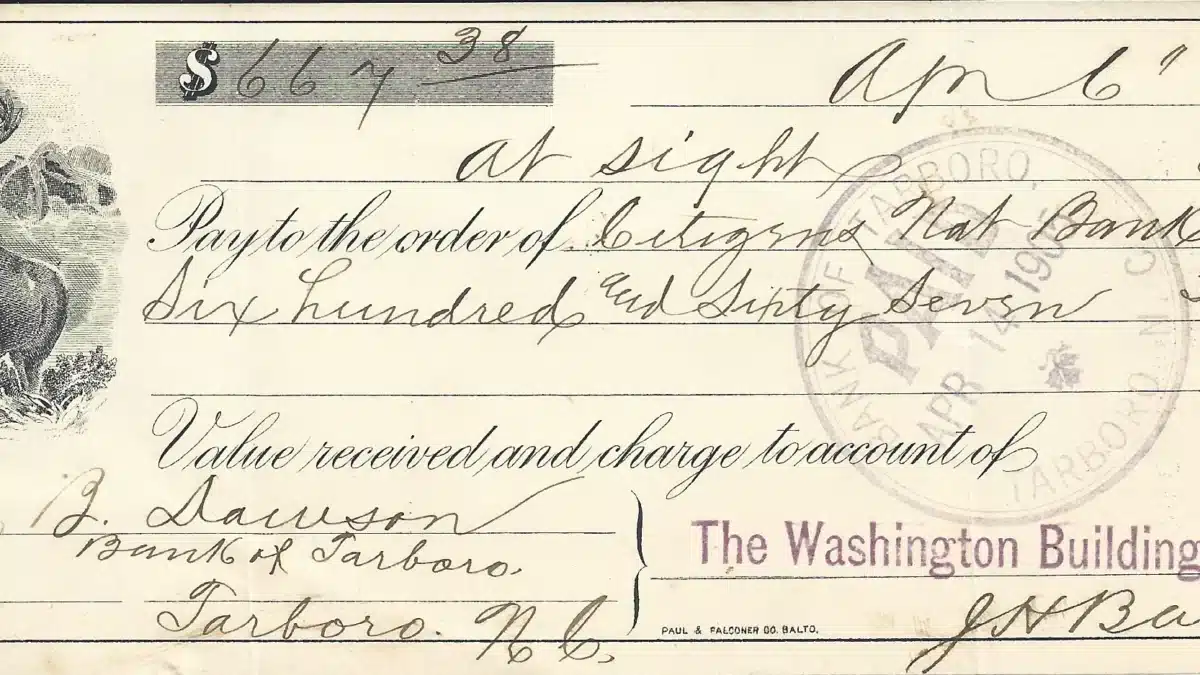 $ 667 38
Apr 6"
At sight
Pay to the order of Citizens Nat Bank
Six hundred and Sixty Seven
Value received and charge to account of
B. Dawson
Bank of Tarboro.
Tarboro. N C.
The Washington Building
J H Ba
PAUL & FALCONER CO. BALTO.
BANK OF TARBORO,
PAID
APR 14 190
TARBORO, N.C.